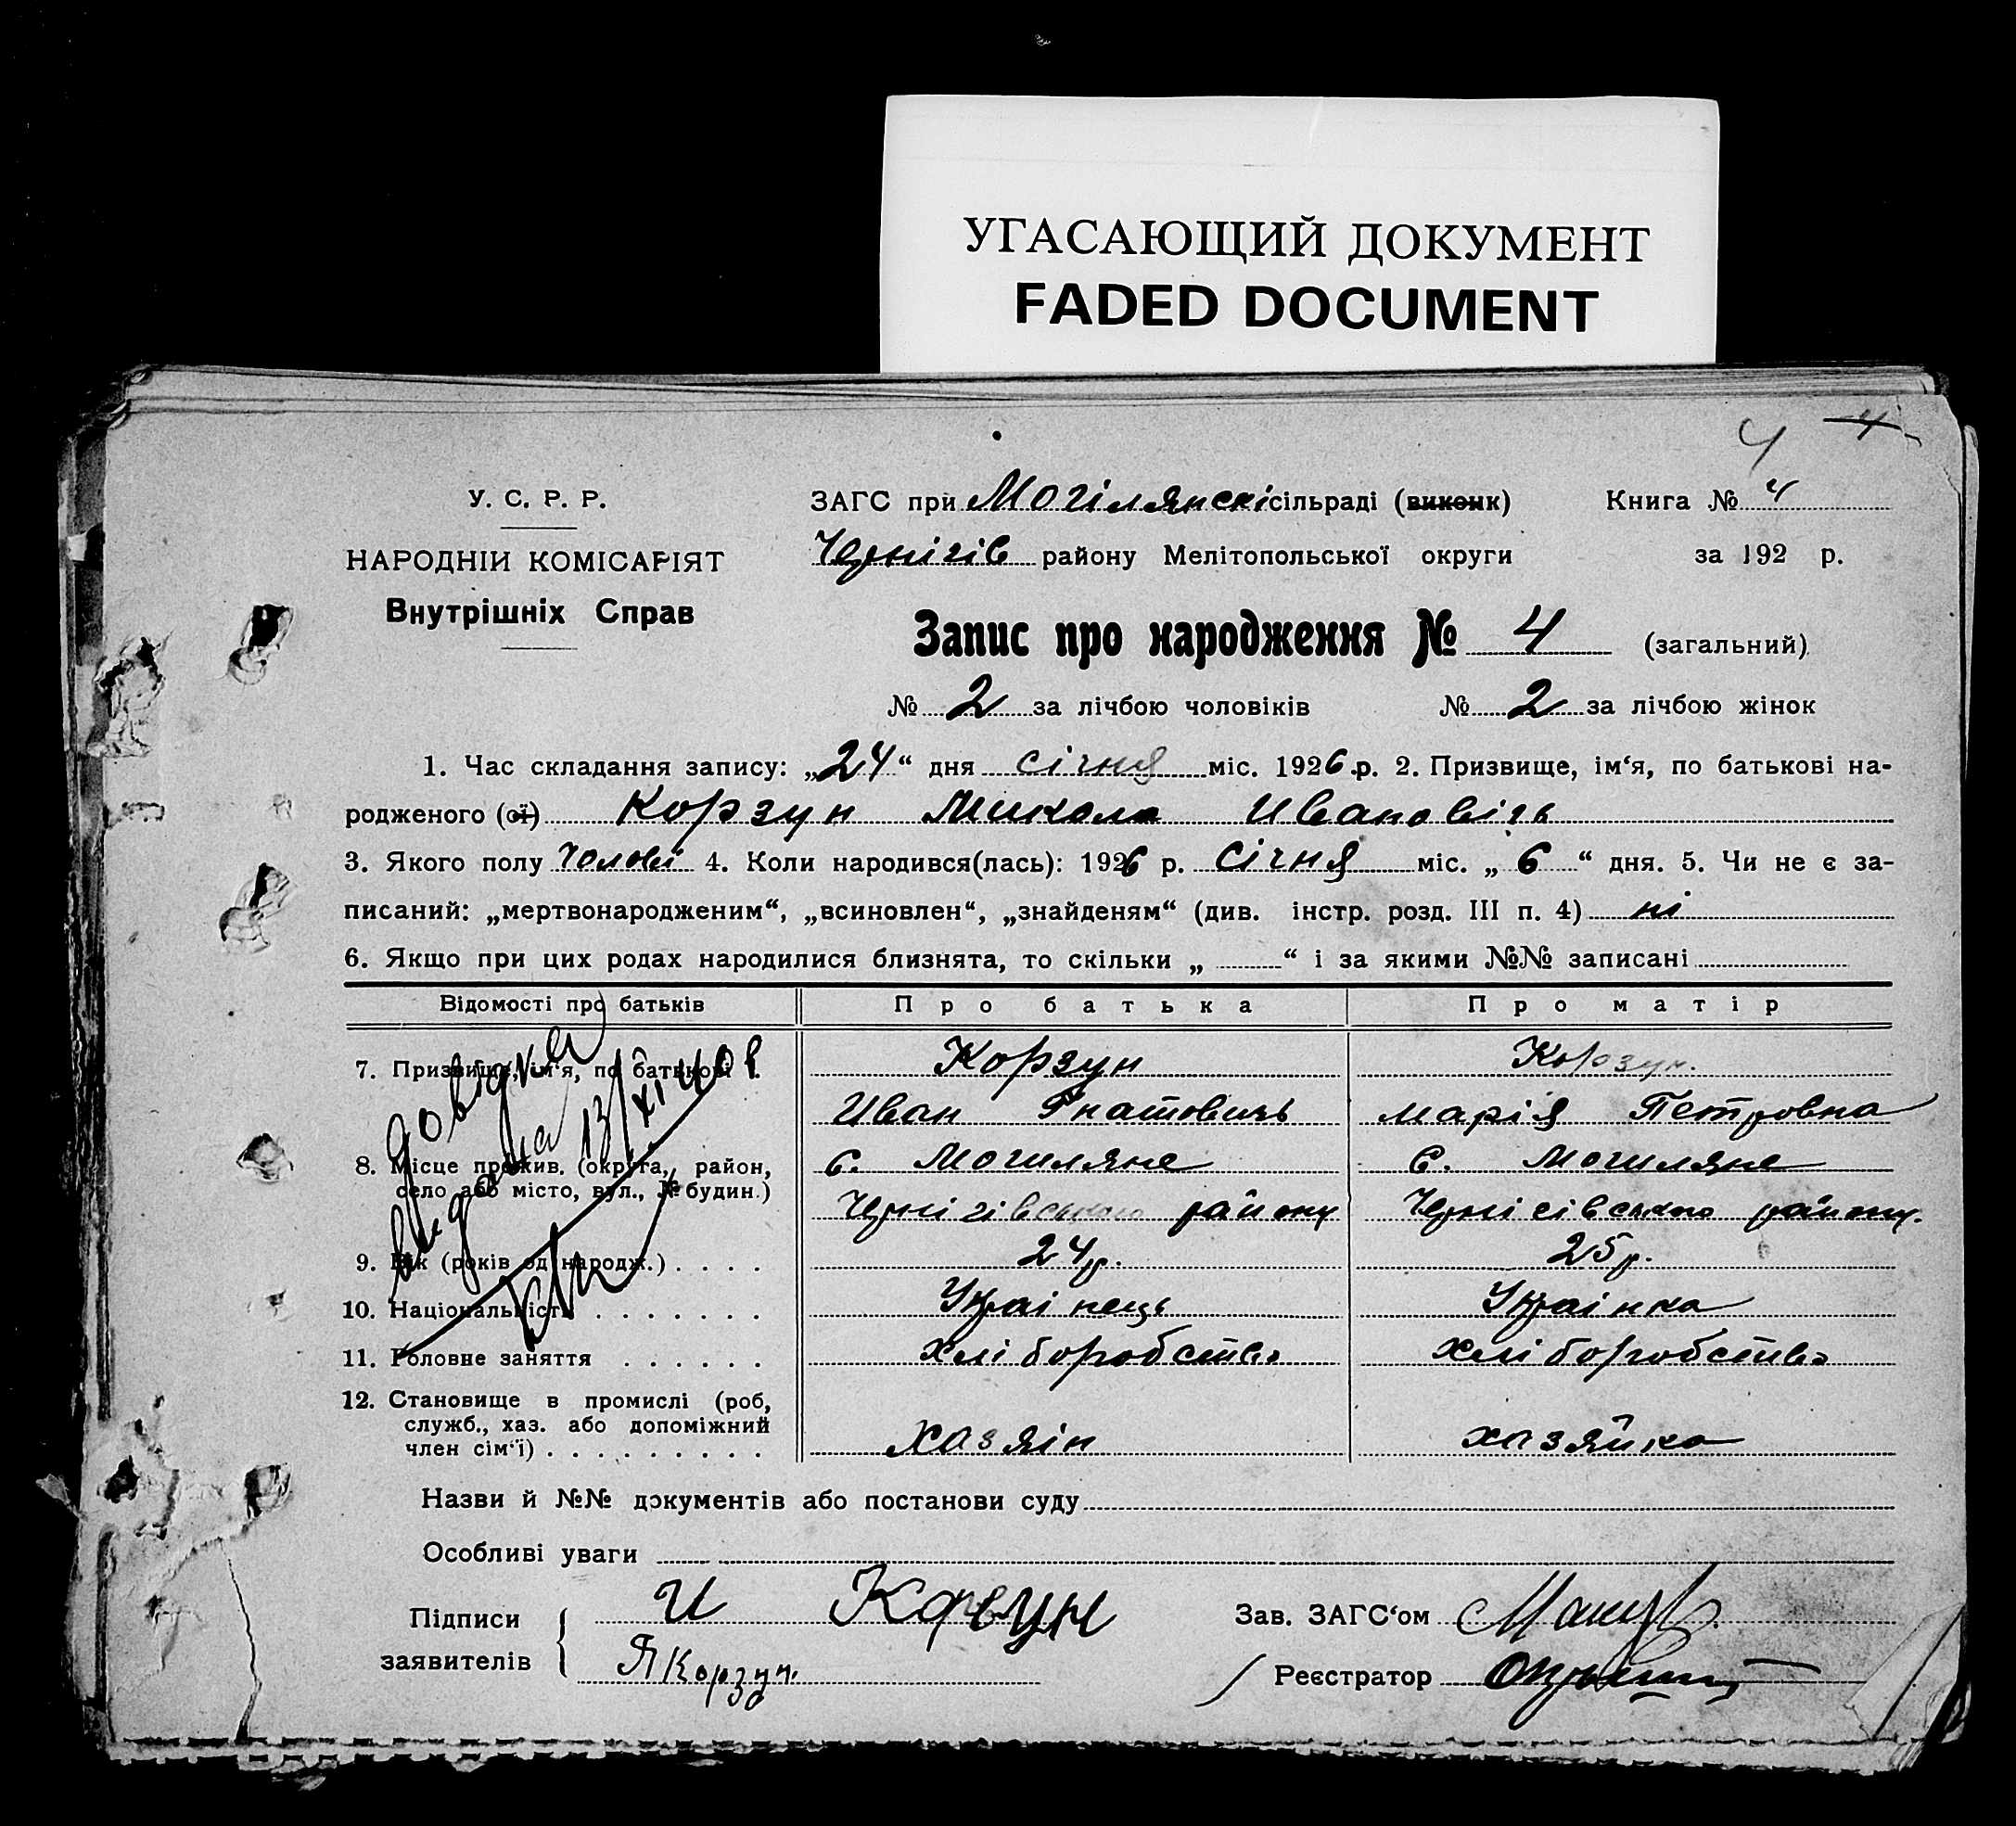 УГАСАЮЩИЙ ДОКУМЕНТ
FADED DOCUMENT
4 4
У. С. Р. Р.
НАРОДНІЙ КОМІСАРІЯТ
Внутрішніх Справ
ЗАГС при Могілянскі сільраді (виконк) Книга № 4
Чернігів району Мелітопольської округи за 192 р.
Запис про народження № 4 (загальний)
№ 2 за лічбою чоловіків № 2 за лічбою жінок
1. Час складання запису: „24“ дня січня міс. 1926 р. 2. Призвище, ім‘я, по батькові на-
родженого (ої) Корзун Микола Ивановічь
3. Якого полу чолові 4. Коли народився(лась): 1926 р. Січня міс. „ 6 “ дня. 5. Чи не є за-
писаний: „мертвонародженим“, „всиновлен“, „знайденям“ (див. інстр. розд. III п. 4) ні
6. Якщо при цих родах народилися близнята, то скільки „ “ і за якими №№ записані
Відомості про батьків Про батька Про матір
7. Призвище, ім‘я, по батькові Корзун Корзун.
Иван Гнатовичь Марія Петровна
8. Місце прожив. (округа, район, с. Могиляне с. Могиляне
село або місто, вул., № будин.) Чернігівського району Чернігівського району.
9. Вік (років од народж.) 24 р. 25 р.
10. Національність Украінець Украінка
11. Головне заняття Хліборобство Хліборобство
12. Становище в промислі (роб,
служб., хаз. або допоміжний
член сім‘ї) Хазяін хазяйка
довідка
видана 13/XI 40 в
Назви й №№ документів або постанови суду
Особливі уваги
Підписи И Корзун Зав. ЗАГС‘ом
заявителів Я Корзун. Реєстратор